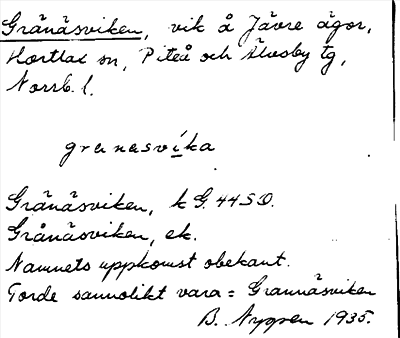 Gränäsviken, vik å Jävre ägor,
Hortlax sn, Piteå och Älvsby tg,
Norrb. l.
granasvíka
Gränäsviken, k G. 44 SO.
Grånäsviken, ek.
Namnets uppkomst obekant.
Torde sannolikt vara = Grannäsviken
B. Nyppen 1935.